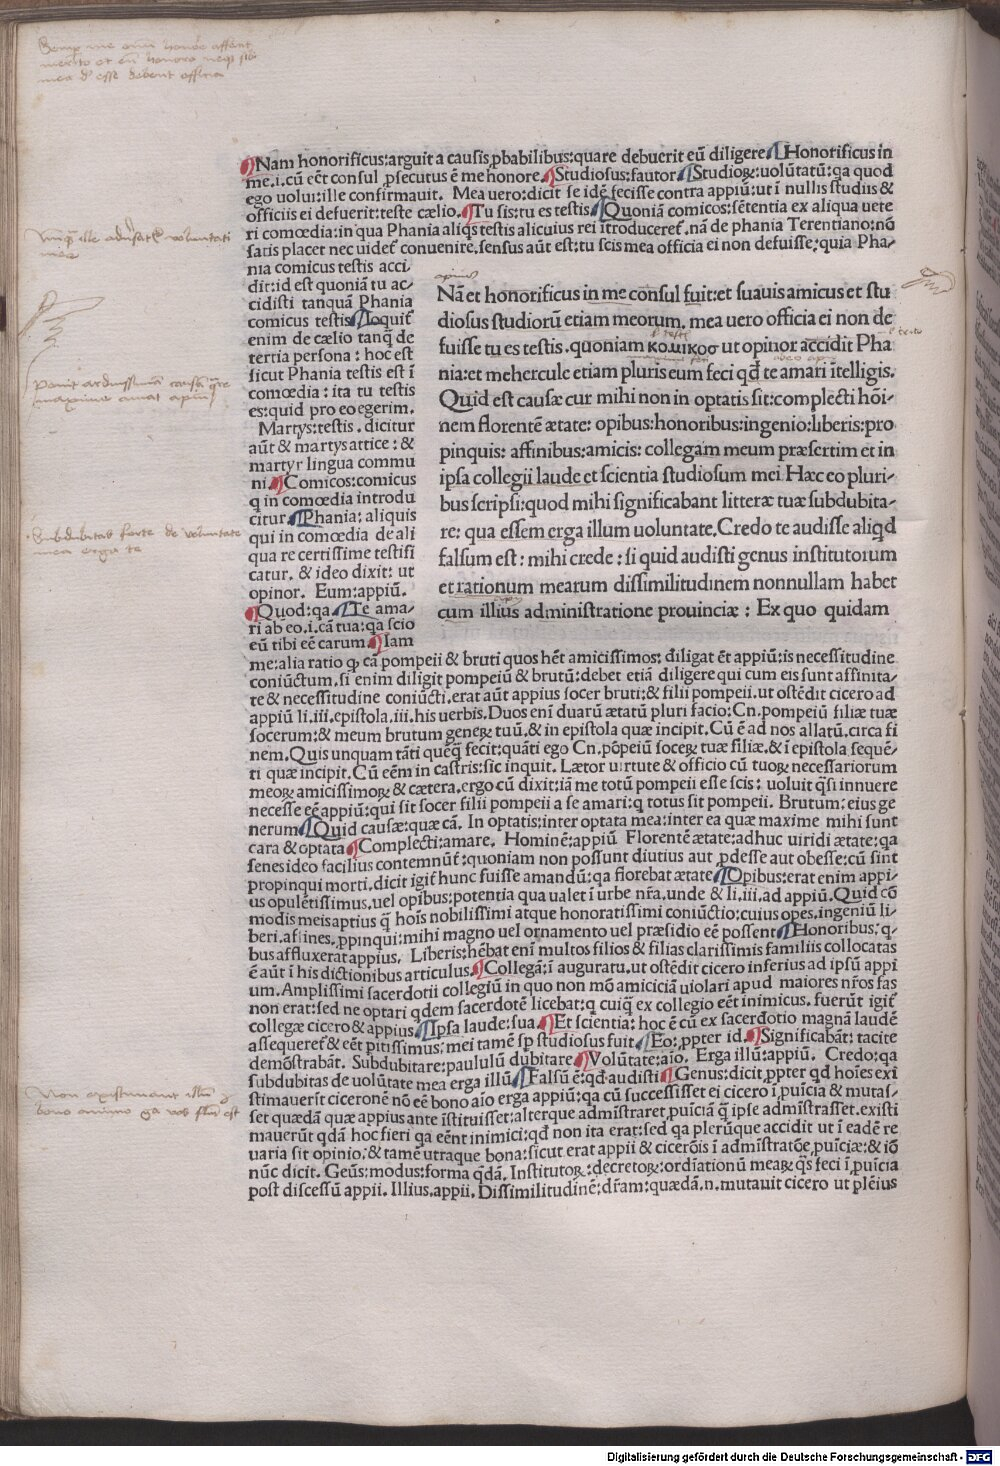 ¶Nam honorificus:arguit a causis ꝓbabilibus:quare debuerit eū diligere ¶Honorificus in
me.i.cū eēt consul ꝓsecutus ē me honore.¶Studiosus:fautor ¶Studioꝝ:uolūtatū:qa quod
ego uolui:ille confirmauit. Mea uero:dicit se idē fecisse contra appiū:ut ī nullis studiis &
officiis ei defuerit:teste cælio.¶Tu sis:tu es testis ¶Quoniā comicos:sētentia ex aliqua uete
ri comœdia:in qua Phania aliqs testis alicuius rei ītroduceret᷑.nā de phania Terentiano:nō
satis placet nec uidet᷑ conuenire.sensus aūt est:tu scis mea officia ei non defuisse:quia Pha/
nia comicus testis acci/
dit:id est quoniā tu ac/
cidisti tanquā Phania
comicus testis ¶Loquit᷑
enim de cælio tanq̄ de
tertia persona: hoc est
sicut Phania testis est ī
comœdia: ita tu testis
es:quid pro eo egerim.
Martys:testis. dicitur
aūt & martys attice: &
martyr lingua commu
ni.¶Comicos:comicus
q in comœdia introdu
citur ¶Phania: aliquis
qui in comœdia de ali
qua re certissime testifi
catur. & ideo dixit: ut
opinor. Eum:appiū.
¶Quod:qa ¶Te ama/
ri ab eo.i.cā tua:qa scio
eū tibi eē carum.¶Iam
Nā et honorificus in me consul fuit:et suauis amicus et stu
diosus studiorū etiam meorum. mea uero officia ei non de
fuisse tu es testis.quoniam κομικοσ ut opinor accidit Pha
nia:et mehercule etiam pluris eum feci qđ te amari ītelligis.
Quid est causæ cur mihi non in optatis sit:complecti hōi/
nem florentē ætate: opibus:honoribus:ingenio:liberis:pro
pinquis: affinibus:amicis: collegam meum præsertim et in
ipsa collegii laude et scientia studiosum mei Hæc eo pluri/
bus scripsi:quod mihi significabant litteræ tuæ subdubita/
re: qua essem erga illum uoluntate.Credo te audisse aliqd
falsum est: mihi crede: si quid audisti genus institutorum
et rationum mearum dissimilitudinem nonnullam habet
cum illius administratione prouinciæ: Ex quo quidam
me:alia ratio q̨ cā pompeii & bruti quos hēt amicissimos: diligat ēt appiū:is necessitudine
coniūctum.si enim diligit pompeiū & brutū:debet etiā diligere qui cum eis sunt affinita/
te & necessitudine coniūcti.erat aūt appius socer bruti:& filii pompeii.ut ostēdit cicero ad
appiū li.iii.epistola.iii.his uerbis.Duos enī duarū ætatū pluri facio:Cn.pompeiū filiæ tuæ
socerum:& meum brutum geneꝝ tuū.& in epistola quæ incipit.Cū ē ad nos allatū.circa fi
nem.Quis unquam tāti quēq̄ fecit:quāti ego Cn.pōpeiū soceꝝ tuæ filiæ.& ī epistola sequē/
ti quæ incipit.Cū eēm in castris:sic inquit. Lætor uirtute & officio cū tuoꝝ necessariorum
meoꝝ amicissimoꝝ & cætera.ergo cū dixit:iā me totū pompeii esse scis: uoluit qsi innuere
necesse eē appiū:qui sit socer filii pompeii a se amari:q totus sit pompeii. Brutum:eius ge
nerum ¶Quid causæ:quæ cā. In optatis:inter optata mea:inter ea quæ maxime mihi sunt
cara & optata ¶Complecti:amare. Hominē:appiū Florentē ætate:adhuc uiridi ætate:qa
senes ideo facilius contemnūt᷑:quoniam non possunt diutius aut ꝓdesse aut obesse:cū sint
propinqui morti.dicit igit᷑ hunc fuisse amandū:qa florebat ætate ¶Opibus:erat enim appi/
us opulētissimus.uel opibus:potentia qua ualet ī urbe nr̄a.unde & li.iii.ad appiū.Quid cō
modis meis aptius q̄ hoīs nobilissimi atque honoratissimi coniūctio:cuius opes.ingeniū li/
beri.affines.ꝓpinqui:mihi magno uel ornamento uel præsidio eē possent ¶Honoribus:q/
bus affluxerat appius. Liberis:hēbat enī multos filios & filias clarissimis familiis collocatas
ē aūt ī his dictionibus articulus.¶Collegā:ī auguratu.ut ostēdit cicero inferius ad ipsū appi
um.Amplissimi sacerdotii collegiū in quo non mō amiciciā uiolari apud maiores nr̄os fas
non erat:sed ne optari qdem sacerdotē licebat:q cuiq̨ ex collegio eēt inimicus. fuerūt igit᷑
collegæ cicero & appius ¶Ipsa laude:sua.¶Et scientia: hoc ē cū ex sacerdotio magnā laudē
assequeret᷑ & eēt pitissimus:mei tamē sp studiosus fuit ¶Eo:ꝓpter id.¶Significabāt: tacite
demōstrabāt. Subdubitare:paululū dubitare ¶Volūtate:aīo. Erga illū:appiū. Credo:qa
subdubitas de uolūtate mea erga illū ¶Falsū ē:qđ audisti ¶Genus:dicit ꝓpter qđ hoīes exi
stimauerīt ciceronē nō eē bono aīo erga appiū:qa cū successisset ei cicero ī ꝓuīcia & mutas/
set quædā quæ appius ante īstituisset:alterque admīstraret ꝓuīciā q̄ ipse admīstrasset.existi
mauerūt qdā hoc fieri qa eēnt inimici:qđ non ita erat:sed qa plerūque accidit ut ī eadē re
uaria sit opinio:& tamē utraque bona:sicut erat appii & cicerōis ī admīstratōe ꝓuīciæ:& iō
nūc dicit. Geūs:modus:forma qdā. Institutoꝝ:decretoꝝ:ordīationū meaꝝ qs feci ī ꝓuīcia
post discessū appii. Illius.appii. Dissimilitudinē:dr̄am:quædā.n.mutauit cicero ut plēius
Digitalisierung gefördert durch die Deutsche Forschungsgemeinschaft - DFG